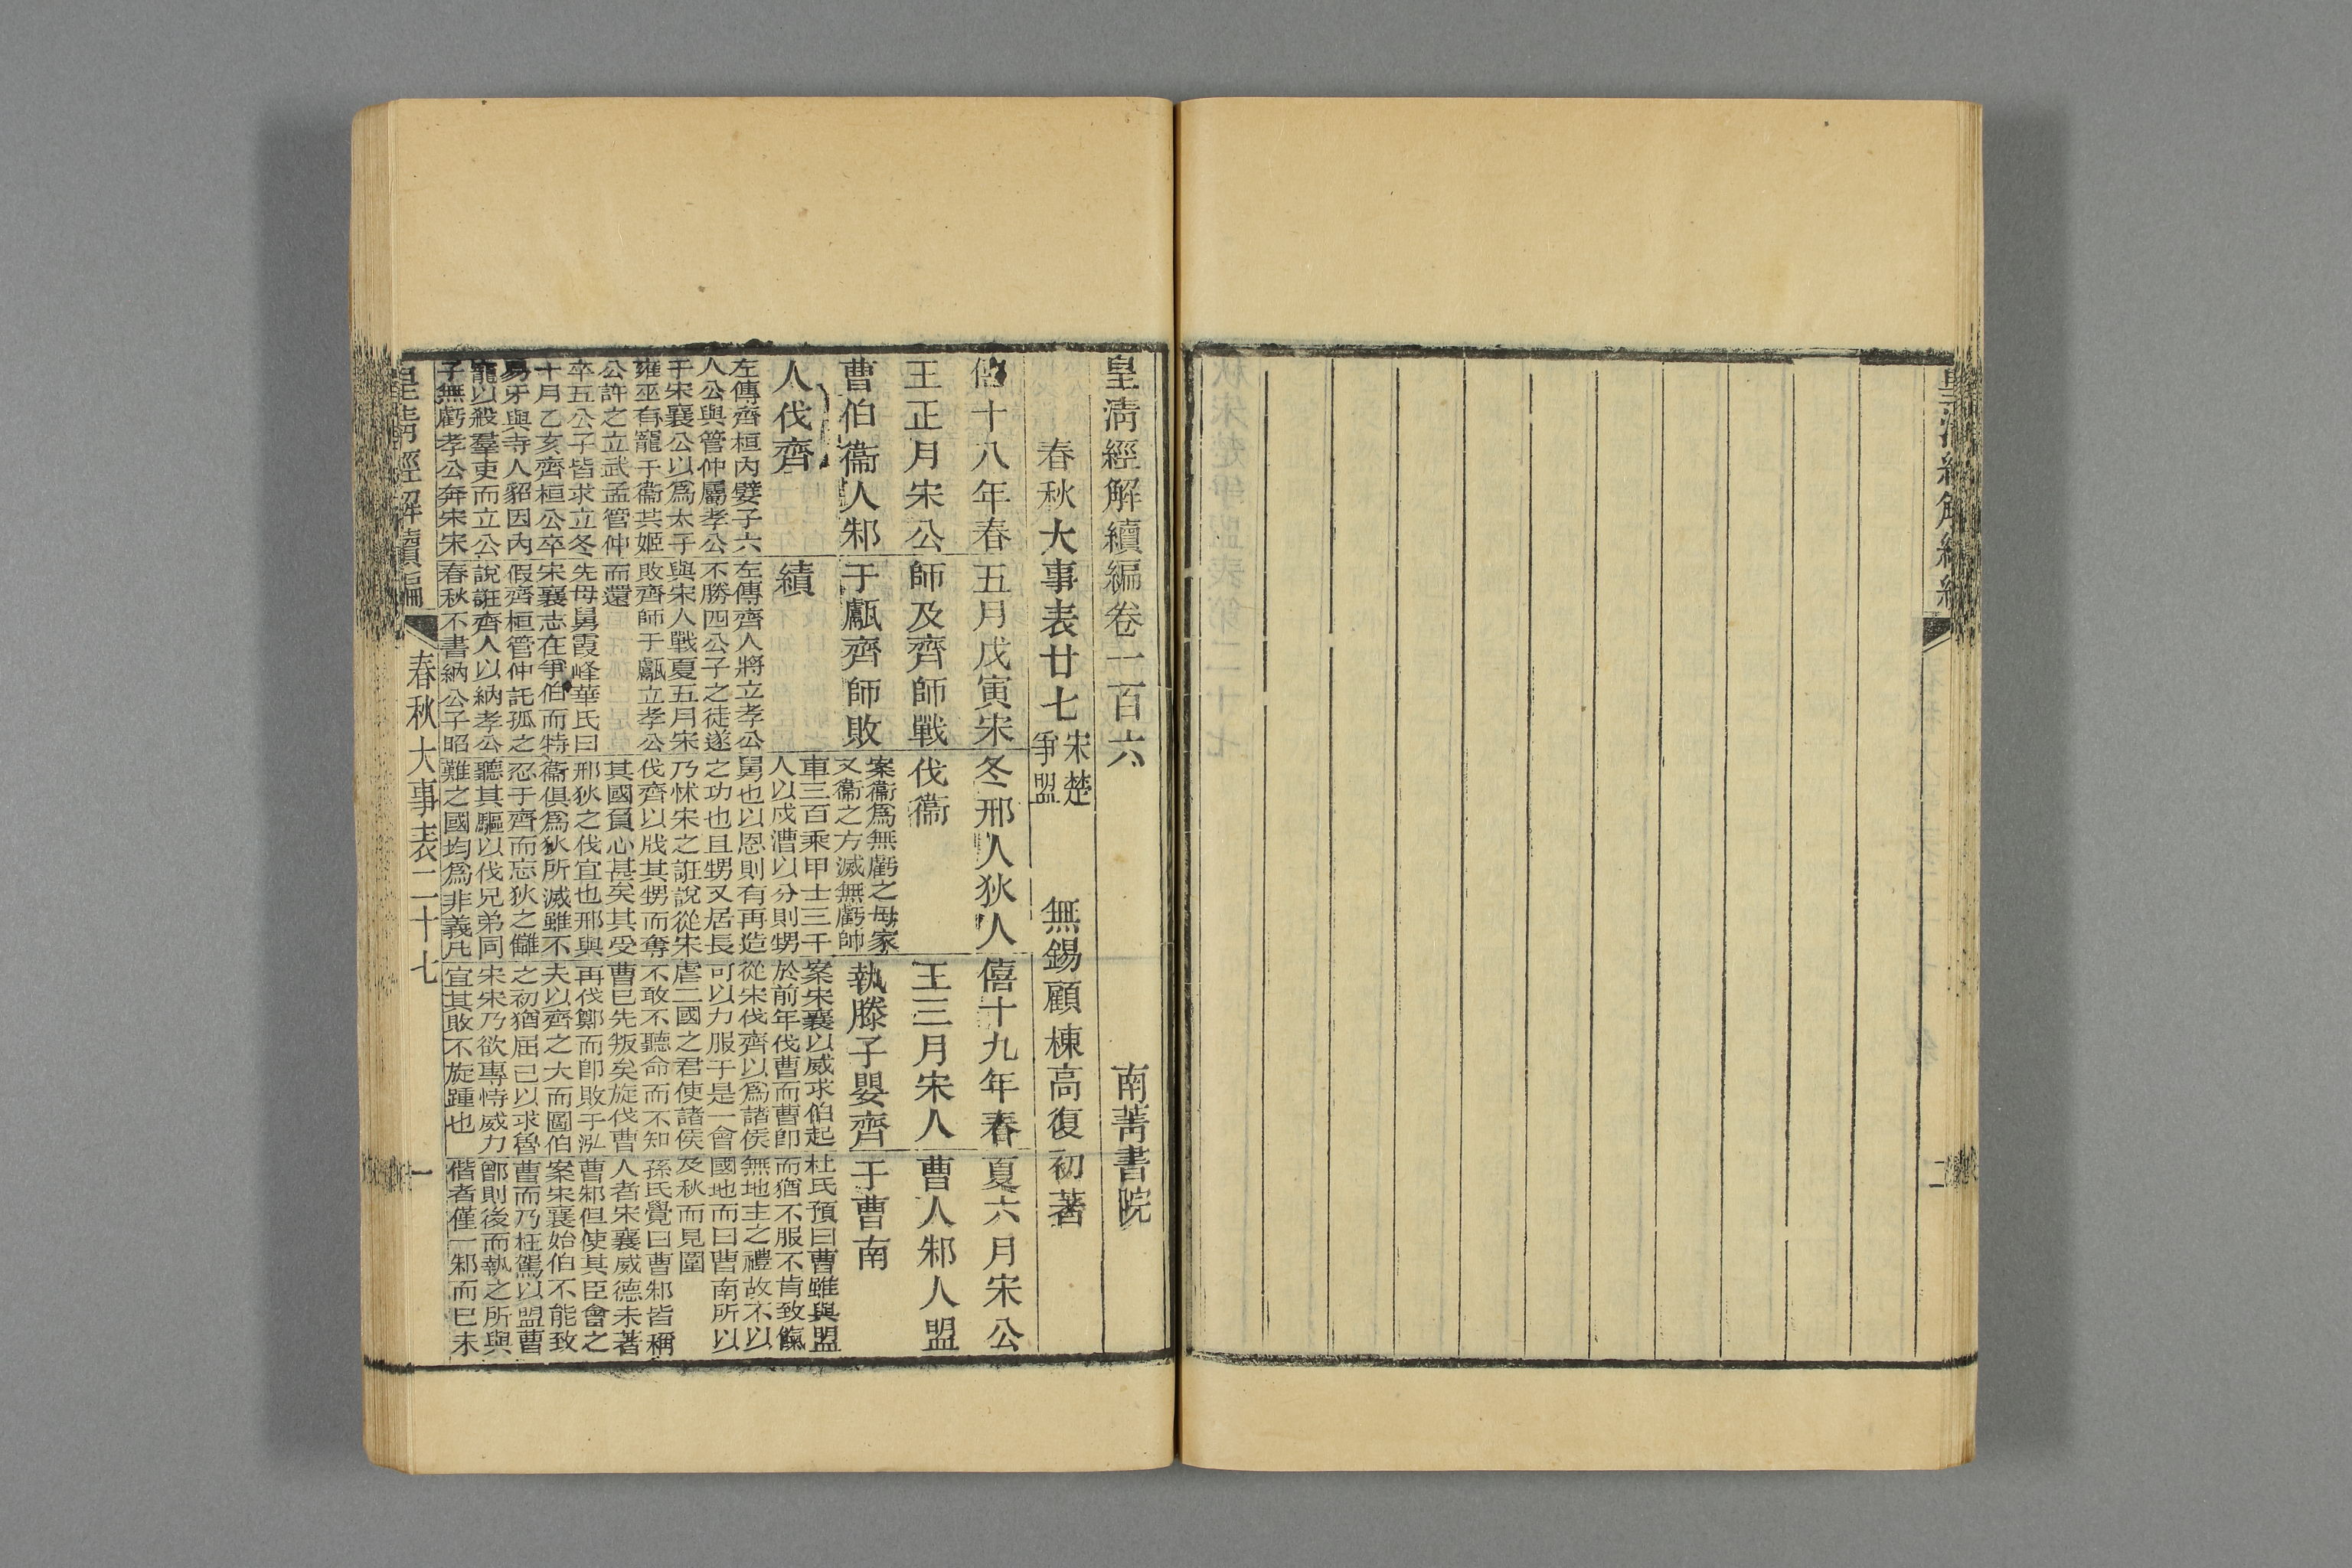 皇清經解續編卷一百六 南菁書院
春秋大事表廿七 宋楚爭盟 無錫顧棟高復初著
僖十八年春
王正月宋公
曹伯衞人邾
人伐齊
左傳齊桓內嬖子六
人公與管仲屬孝公
于宋襄公以爲太子
雍巫有寵于衞共姬
公許之立武孟管仲
卒五公子皆求立冬
十月乙亥齊桓公卒
易牙與寺人貂因內
寵以殺羣吏而立公
子無虧孝公奔宋宋
五月戊寅宋
師及齊師戰
于甗齊師敗
績
左傳齊人將立孝公
不勝四公子之徒遂
與宋人戰夏五月宋
敗齊師于甗立孝公
而還
先母舅霞峰華氏曰
宋襄志在爭伯而特
假齊桓管仲託孤之
說誑齊人以納孝公
春秋不書納公子昭
冬邢人狄人
伐衞
案衞爲無虧之母家
又衞之方滅無虧帥
車三百乘甲士三千
人以戍漕以分則甥
舅也以恩則有再造
之功也且甥又居長
乃怵宋之誑說從宋
伐齊以戕其甥而奪
其國負心甚矣其受
邢狄之伐宜也邢與
衞俱爲狄所滅雖不
忍于齊而忘狄之讎
聽其驅以伐兄弟同
難之國均爲非義凡
僖十九年春
王三月宋人
執滕子嬰齊
案宋襄以威求伯起
於前年伐曹而曹卽
從宋伐齊以爲諸侯
可以力服于是一會
虐二國之君使諸侯
不敢不聽命而不知
曹已先叛矣旋伐曹
再伐鄭而卽敗于泓
夫以齊之大而圖伯
之初猶屈己以求魯
宋宋乃欲專恃威力
宜其敗不旋踵也
夏六月宋公
曹人邾人盟
于曹南
杜氏預曰曹雖與盟
而猶不服不肯致餼
無地主之禮故不以
國地而曰曹南所以
及秋而見圍
孫氏覺曰曹邾皆稱
人者宋襄威德未著
曹邾但使其臣會之
案宋襄始伯不能致
曹而乃枉駕以盟曹
鄫則後而執之所與
偕者僅一邾而已未
皇清經解續編 春秋大事表二十七 一